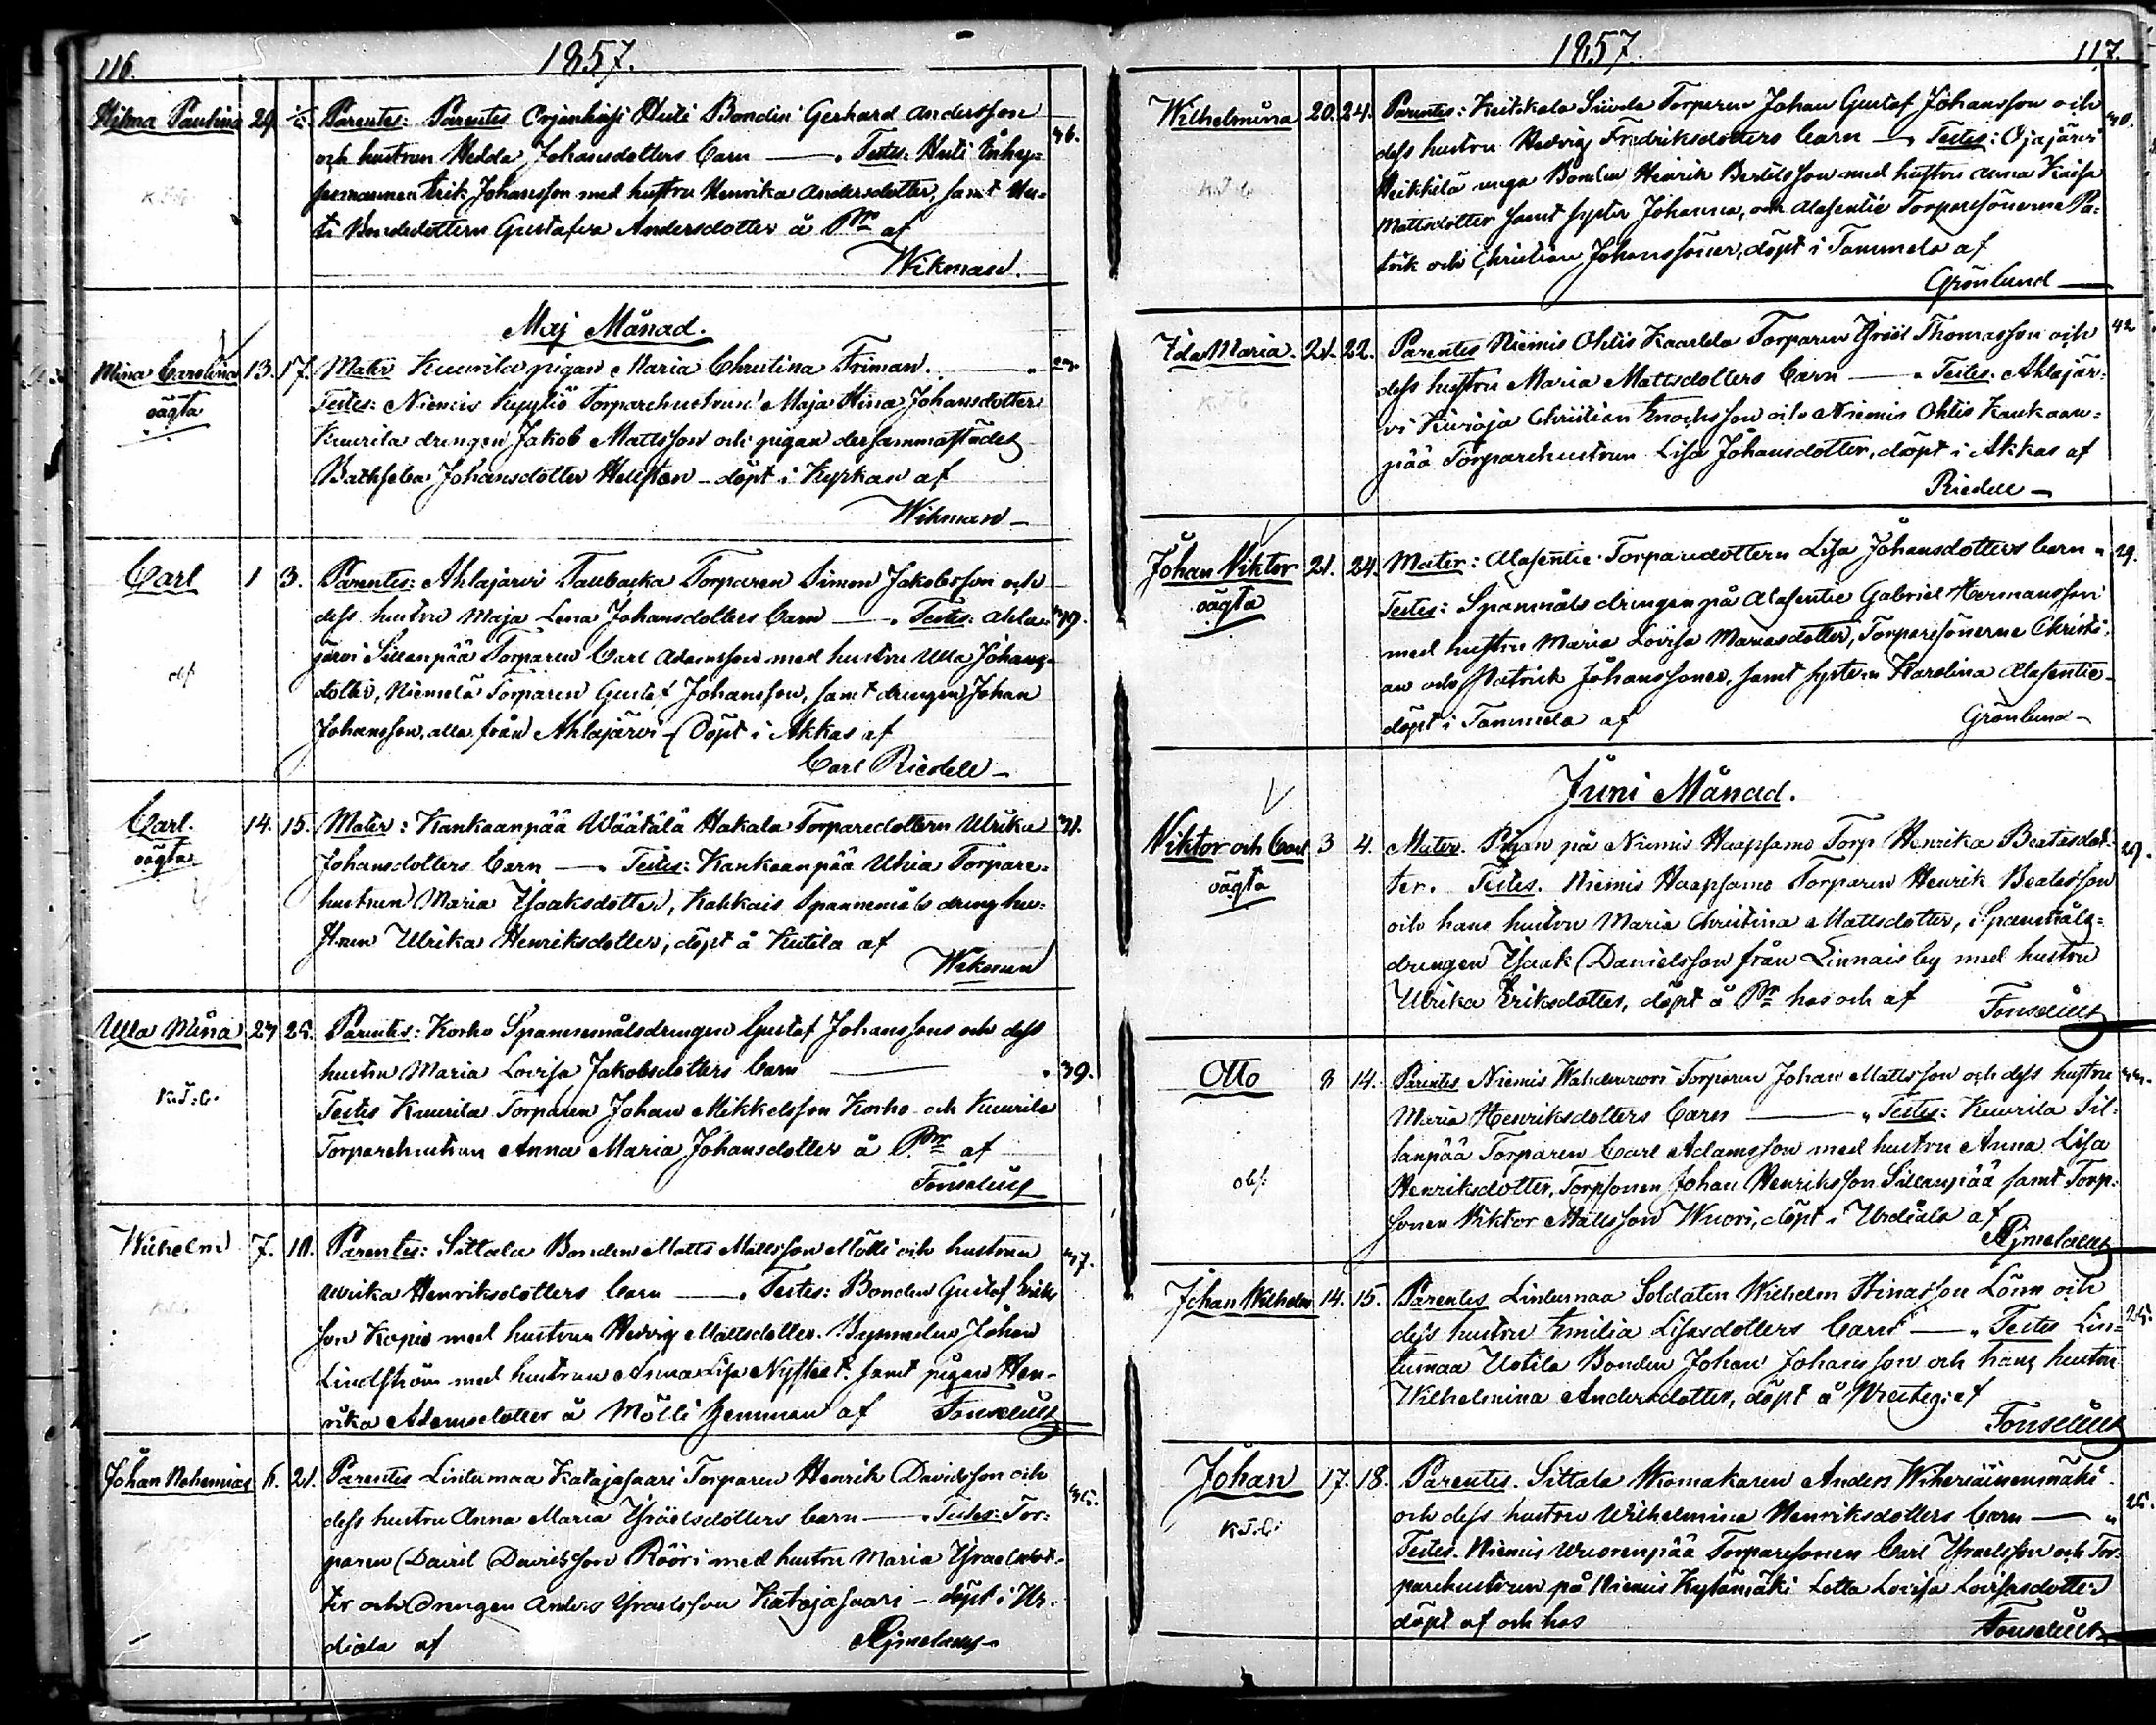 116.
1857.
Hilma Paulina 29. Parentes: Parentes Heiti Gerhard Andersson
och hustrun Hedda Johansdotters barn — . Testes: 36.
Erik Johansson med hustru Henrika Andersdotter, samt
Gustafva Andersdotter å Pr af
Wikman.
Maj Månad.
Mina Carolina 13. 17. Mater Kuurila pigan Maria Christina Friman.
oägta Testes: Niemis Torparehustrun Maja Stina Johansdotter
Kuurila drengen Jakob Mattsson och pigan dersammastädes
Bathseba Johansdotter Hellsten - döpt i Kyrkan af
Wikman -
Carl 1 3. Parentes: Ahlajärvi Torparen Simon Jakobsson och
dess hustru Maja Lena Johansdotters barn — . Testes: Ahla- 39.
järvi Sillanpää Torparen Carl Adamsson med hustru Ulla Johans-
dotter, Niemelä Torparen Gustaf Johansson, samt drengen Johan
Johansson, alla från Ahlajärvi - Döpt i Akkas af
Carl Riedell -
Carl. 14. 15. Mater: Kankaanpää Wäätälä Hakala Torparedottern Ulrika 31.
oägta Johansdotters barn — . Testes: Kankaanpää Torpare-
hustrun Maria Isaksdotter, Spannemåls dreng hu-
strun Ulrika Henriksdotter, döpt å Kutila af
Wikman
Ulla Mina 23 25. Parentes: Korho Spannemålsdrengen Gustaf Johanssons och dess
hustru Maria Lovisa Jakobsdotters barn — . 39.
K.J.C. Testes Kuurila Torparen Johan Mikkelsson Korho och Kuurila
Torparehustrun Anna Maria Johansdotter å Pr af
Fonselius
Wilhelm 7. 10. Parentes: Sittala Bonden Matts Mattsson Mölli och hustrun 37.
Ulrika Henriksdotters barn — . Testes: Bonden Gustaf Eriks-
son med hustrun Hedvig Mattsdotter. Johan
Lindström med hustrun Anna Lisa samt pigan Hen-
rika Adamsdotter å Mölli hemman af Fonselius
Johan Nehemias 6. 21. Parentes Lintumaa Katajasaari Torparen Henrik Davidsson och 35.
dess hustru Anna Maria Israelsdotters barn — . Testes: Tor-
paren David Davidsson Rööri med hustru Maria Israelsdot-
ter och Drengen Anders Israelsson Katajasaari - döpt i Ur-
diala af
1857.
117.
Wilhelmina 20. 24. Parentes: Torparen Johan Gustaf Johansson och 30.
dess hustru Hedvig Fredriksdotters barn — . Testes: Ojajärvi
Heikkilä unga Bonden Henrik Bertilsson med hustru Anna Kaisa
Mattsdotter samt syster Johanna, och Alasentie Torparesönerne Pa-
trik och Christian Johanssöner, döpt i Tammela af
Grönlund —
Ida Maria. 21. 22. Parentes Niemis Ohtis Kaarela Torparen Isräel Thomasson och 42
dess hustru Maria Mattsdotters barn — . Testes. Ahlajär-
vi Kivioja Christian Enochsson och Niemis Ohtis Kankaan-
pää Torparehustrun Lisa Johansdotter, döpt i Akkas af
Riedell —
Johan Viktor 21. 24. Mater: Alasentie Torparedottern Lisa Johansdotters barn 29.
oägta Testes: Spannmåls drengen på Alasentie Gabriel Hermansson
med hustru Maria Lovisa Mariasdotter, Torparesönerne Christi-
an och Patrick Johanssöner, samt system Karolina Alasentie -
döpt i Tammela af Grönlund -
Juni Månad.
Viktor och Carl 3 4. Mater. Pigan på Niemis Haapsamo Torp Henrika Beatasdot- 29.
oägta ter. Testes. Niemis Haapsamo Torparen Henrik Beatasson
och hans hustru Maria Christina Mattsdotter, Spannmåls-
drengen Isaak Danielsson från Linnais by med hustru
Ulrika Eriksdotter, döpt å Pr hos och af Fonselius
Otto 8 14. Parentes Niemis Torparen Johan Mattsson och dess hustru
Maria Henriksdotters barn — . Testes: Kuurila Sil-
lanpää Torparen Carl Adamsson med hustru Anna Lisa
Henriksdotter, Torpsonen Johan Henriksson Sillanpää samt Torp-
sonen Viktor Mattsson Wuori, döpt i Urdiala af
Johan Wilhelm 14. 15. Parentes Lintumaa Soldaten Wilhelm Stinasson Lönn och 25.
dess hustru Emilia Lisasdotters barn — . Testes Lin-
tumaa Uotila Bonden Johan Johansson och hans hustru
Wilhelmina Andersdotter, döpt å af
Fonselius
Johan 17. 18. Parentes. Sittala Skomakaren Anders Wiheriäinenmäki
K.J.C. och dess hustru Wilhelmina Henriksdotters barn — 25.
Testes. Niemis Wuorenpää Torparesonen Carl Israelsson och Tor-
parehustrun på Niemis Kylämäki Lotta Lovisa Lovisasdotter
döpt af och hos Fonselius